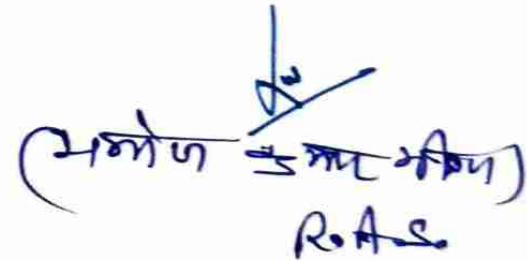 (मनोज कुमार
R.A.S.